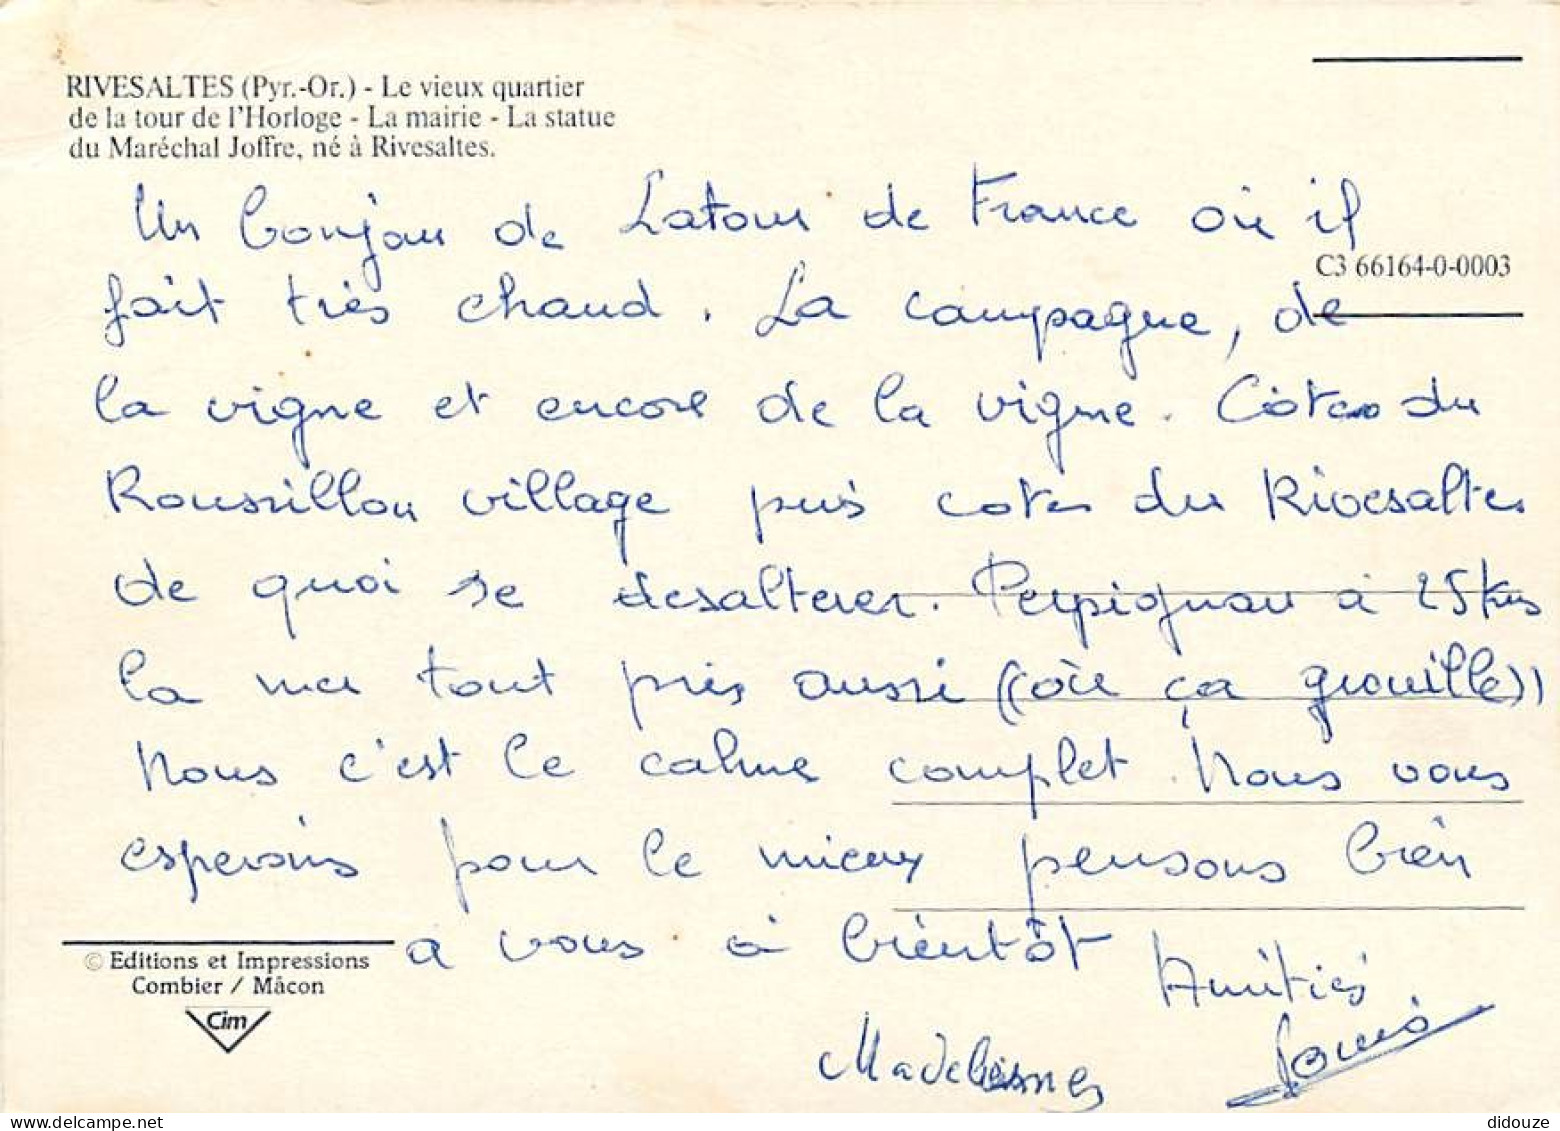 RIVESALTES (Pyr.-Or.) - Le vieux quartier
de la tour de l'Horloge - La mairie - La statue
du Maréchal Joffre, né à Rivesaltes.
Un bonjour de Latour de France où il
C3 66164-0-0003
fait très chaud. La campagne, de
la vigne et encore de la vigne. Côtes du
Roussillon village puis cotes du Rivesaltes
de quoi se desalterer. Perpignan à 25 kms
la mer tout près aussi ((où ça grouille))
Nous c'est le calme complet. Nous vous
esperons pour le mieux pensons bien
à vous à bientôt
Amitiés
© Editions et Impressions
Combier / Mâcon
Cim
Madeleine
didouze